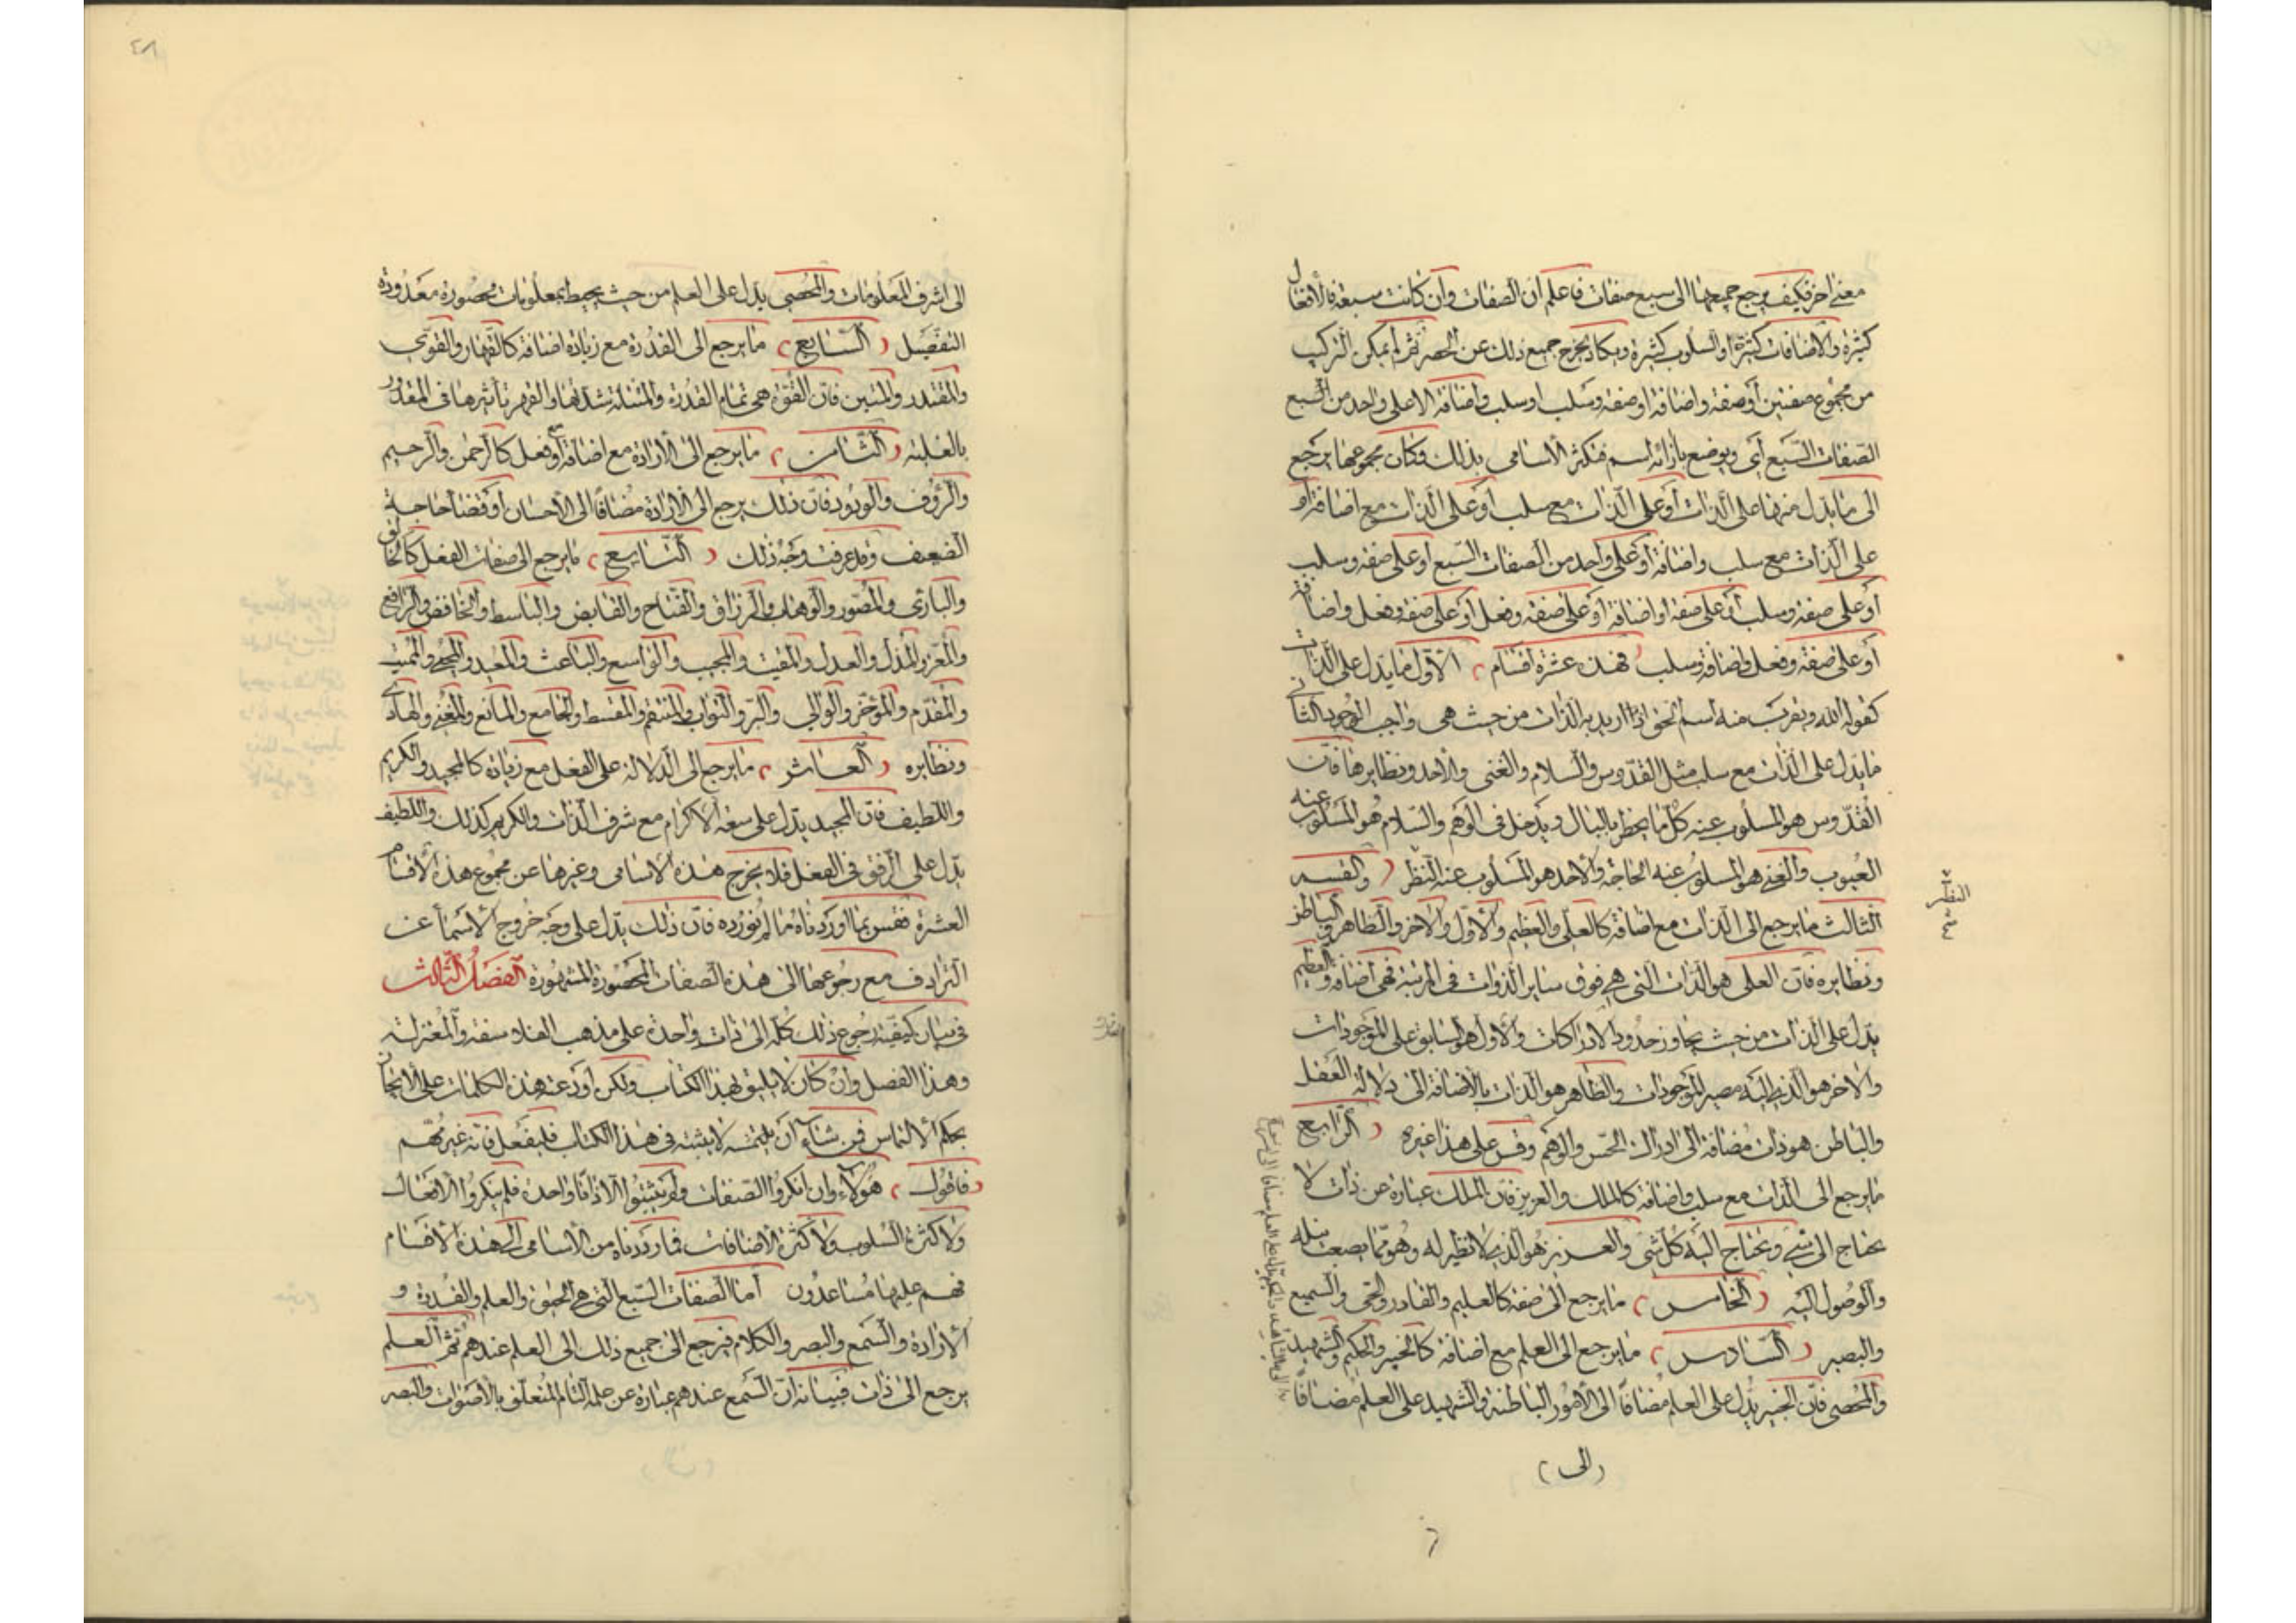 معنى اخر فكيف يرجع جميعها الى سبع صفات فاعلم ان الصفات وان كانت سبعة فالافعال
كثيرة والاضافات كثيرة والسلوب كثيرة ويكاد يخرج جميع ذلك عن الحصر ثم يمكن التركيب
من مجموع صفتين أو صفة واضافة او صفة وسلب او سلب واضافة الاعلى واحد من السبع
الصفات السبع أى ويوضع بأزائه اسم فتكثر الأسامي بذلك وكان مجموعها يرجع
الى ما يدل منها على الذات أو على الذات مع سلب أو على الذات مع اضافة أو
على الذات مع سلب واضافة أو على واحد من الصفات السبع او على صفة وسلب
أو على صفة وسلب أو على صفة او اضافة أو على صفة وفعل أو على صفة وفعل واضافة
أو على صفة وفعل واضافة وسلب فهذه عشرة اقسام الاول ما يدل على الذات
كقوله الله ويقرب منه اسم الحق اذا اريد به الذات من حيث هى واجب الوجود الثانى
ما يدل على الذات مع سلب مثل القدوس والسلام والغنى والاحد ونظايرها فان
القدوس هو المسلوب عنه كل ما يخطر بالبال ويدخل فى الوهم والسلام هو المسلوب عنه
العيوب والغنى هو المسلوب عنه الحاجة والاحد هو المسلوب عنه النظر والقسم
النظير
الثالث ما يرجع الى الذات مع اضافة كالعلى والعظيم والاول والاخر والظاهر والباطن
ونظايره فان العلى هو الذات التى هى فوق ساير الذوات فى المرتبة فهى اضافة والعظيم
يدل على الذات من حيث تجاوز حدود الادراكات والاول هو السابق على الموجودات
والاخر هو الذى اليه مصير الموجودات والظاهر هو الذات بالاضافة الى دلالة العقل
والباطن هو ذات مضافة الى ادراك الحس والوهم وقس على هذا غيره الرابع
ما يرجع الى الذات مع سلب واضافة كالملك والعزيز فان الملك عبارة عن ذات لا
يحتاج الى شئ ويحتاج اليه كل شئ والعزيز هو الذى لا نظير له وهو مما يصعب نيله
والوصول اليه الخامس ما يرجع الى صفة كالعليم والقادر والحى والسميع
والبصير السادس ما يرجع الى العلم مع اضافة كالخبير والحكيم والشهيد
والمحصى فان الخبير يدل على العلم مضافا الى الامور الباطنة والشهيد على العلم مضافا
الى
الى اشرف المعلومات والمحصى يدل على العلم من حيث يحيط بمعلومات محصورة معدودة
التفصيل السابع ما يرجع الى القدرة مع زيادة اضافة كالقهار والقوى
والمقتدر والمتين فان القوة هى تمام القدرة والمتانة شدتها والقهر تأثيرها فى المقدور
بالغلبة الثامن ما يرجع الى الارادة مع اضافة أو فعل كالرحمن والرحيم
والرؤف والودود فان ذلك يرجع الى الارادة مضافا الى الاحسان أو قضاء حاجة
الضعيف وقد عرفت وجه ذلك التاسع ما يرجع الى صفات الفعل كالخالق
والبارئ والمصور والوهاب والرزاق والفتاح والقابض والباسط والخافض والرافع
والمعز والمذل والعدل والمقيت والمجيب والواسع والباعث والمعيد والمحيى والمميت
والمقدم والمؤخر والوالى والبر والتواب والمنتقم والمقسط والجامع والمانع والمغنى والهادى
ونظايره العاشر ما يرجع الى الدلالة على الفعل مع زيادة كالمجيد والكريم
واللطيف فان المجيد يدل على سعة الاكرام مع شرف الذات والكريم كذلك واللطيف
يدل على الرفق فى الفعل فلا يخرج هذه الاسامى وغيرها عن مجموع هذه الاقسام
العشرة فقس بما اوردناه ما لم نورده فان ذلك يدل على وجه خروج الاسماء عن
الترادف مع رجوعها الى هذه الصفات المحصورة المشهورة الفصل الثالث
فى بيان كيفية رجوع ذلك كله الى ذات واحدة على مذهب الفلاسفة والمعتزلة
وهذا الفصل وان كان لا يليق بهذا الكتاب ولكن أودعت هذه الكلمات على الايجاز
بحكم الالتماس فمن شاء أن يلتمسه لا يثبته فى هذا الكتاب فليفعل فانه غير مهم
فاقول هؤلاء وان انكروا الصفات ولم يثبتوا الا ذاتا واحدة فلم ينكروا الافعال
ولا كثرة السلوب ولا كثرة الاضافات فما رددناه من الأسامى الى هذه الاقسام
فهم عليها مساعدون أما الصفات السبع التى هى الحيوة والعلم والقدرة و
الارادة والسمع والبصر والكلام فيرجع الى جميع ذلك الى العلم عندهم ثم العلم
يرجع الى ذات فبيانه ان السمع عندهم عبارة عن علمه التام المتعلق بالاصوات والبصر